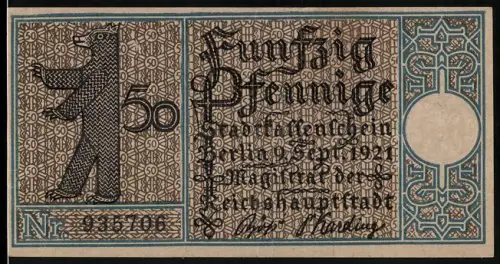 50
Fünfzig
Pfennige
Stadtkassenschein
Berlin 9. Sept. 1921
Magistrat der
Reichshauptstadt
Nr. 935706